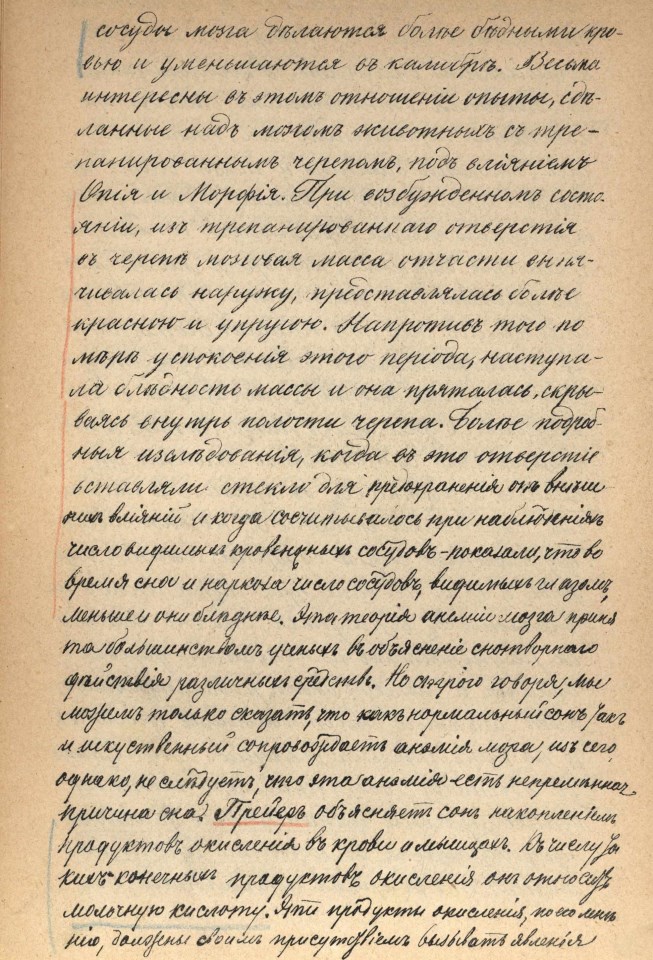 сосуды мозга дѣлаются болѣе бѣдными кро-
вью и уменьшаются въ калибрѣ. Весьма
интересны въ этомъ отношеніи опыты, сдѣ-
ланные надъ мозгомъ животныхъ съ тре-
панированнымъ черепомъ, подъ вліяніемъ
Опія и Морфія. При возбужденномъ состо-
яніи, изъ трепанированнаго отверстія
въ черепѣ мозговая масса отчасти выпя-
чивалась наружу, представлялась болѣе
красною и упругою. Напротивъ того по
мѣрѣ успокоенія этого періода, наступа-
ла блѣдность массы и она пряталась, скры-
ваясь внутрь полости черепа. Болѣе подроб-
ныя изслѣдованія, когда въ это отверстіе
вставляли стекло для предохраненія отъ внѣш-
нихъ вліяній и когда сосчитывалось при наблюденіяхъ
число видимыхъ кровеныхъ сосудовъ-показали, что во
время сна и наркоза число сосудовъ, видимыхъ глазомъ,
меньше и они блѣднѣе. Эта теорія анеміи мозга приня
та большинствомъ ученыхъ въ объясненіе снотворнаго
дѣйствія различныхъ средствъ. Но строго говоря, мы
можемъ только сказать, что какъ нормальный сонъ такъ
и искуственный сопровождаетъ анемія мозга, изъ сего,
однако, не слѣдуетъ, что эта анемія есть непремѣнная
причина сна. Прейеръ объясняетъ сонъ накопленіемъ
продуктовъ окисленія въ крови и мышцахъ. Къ числу та
кихъ конечныхъ продуктовъ окисленія онъ относитъ
молочную кислоту. Эти продукты окисленія, по его мнѣ-
нію, должны своимъ присутствіемъ вызывать явленія